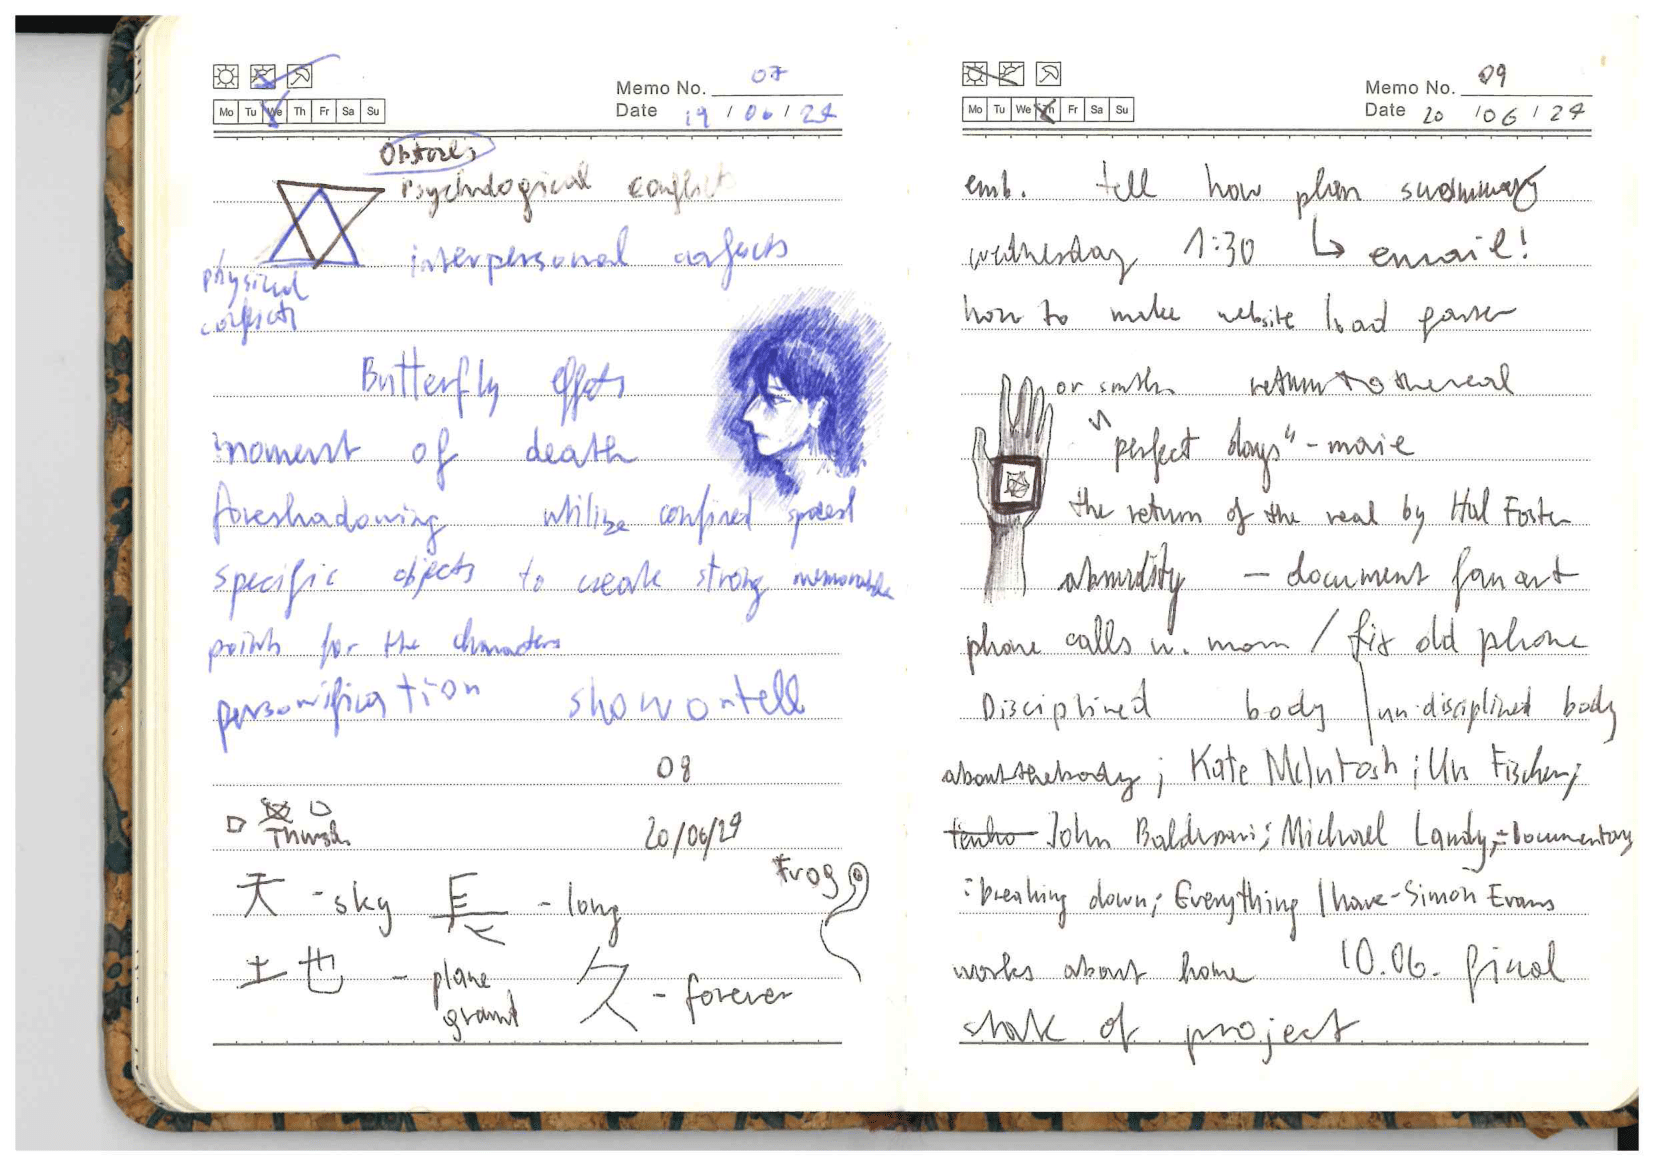 Memo No. 07
Mo Tu We Th Fr Sa Su
Date 19 / 06 / 24
Psychological conflicts
interpersonal conflicts
physical
conflicts
Butterfly effets
moment of death
foreshadowing utilize confined spaces
specific objects to create strong memorable
points for the characters
personification show o ntell
08
Thursh 20/06/24
Frog
天 - sky 長 - long
土也 - plane
ground
久 - forever
Memo No. 09
Mo Tu We Th Fr Sa Su
Date 20 / 06 / 24
emb. tell how plan summary
wednesday 1:30 ↳ email!
how to make website load faster
or smth return to the real
"perfect days" - movie
the return of the real by Hal Foster
absurdity - document fan art
phone calls w. mom / fix old phone
Disciplined body un-disciplined body
about the body ; Kate McIntosh ; Urs Fischer;
John Baldessari; Michael Landy, = Documentary
: breaking down; Everything I have - Simon Evans
works about home 10.06. final
state of project